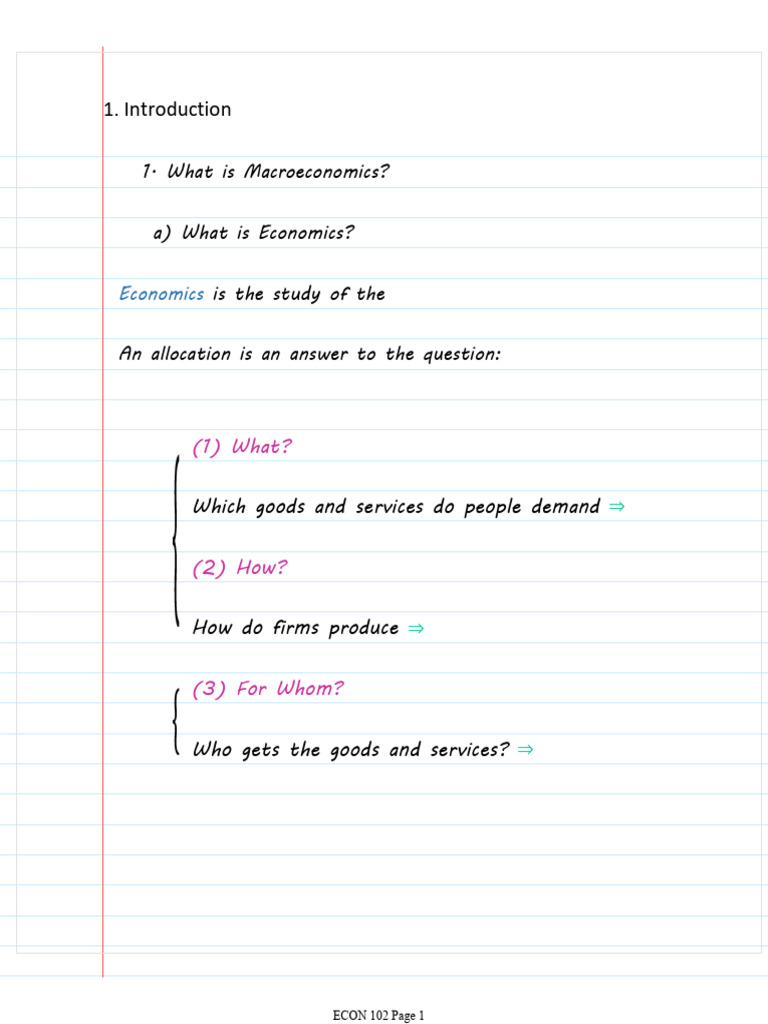 1. Introduction
1. What is Macroeconomics?
a) What is Economics?
Economics is the study of the
An allocation is an answer to the question:
(1) What?
Which goods and services do people demand ⇒
(2) How?
How do firms produce ⇒
(3) For Whom?
Who gets the goods and services? ⇒
ECON 102 Page 1